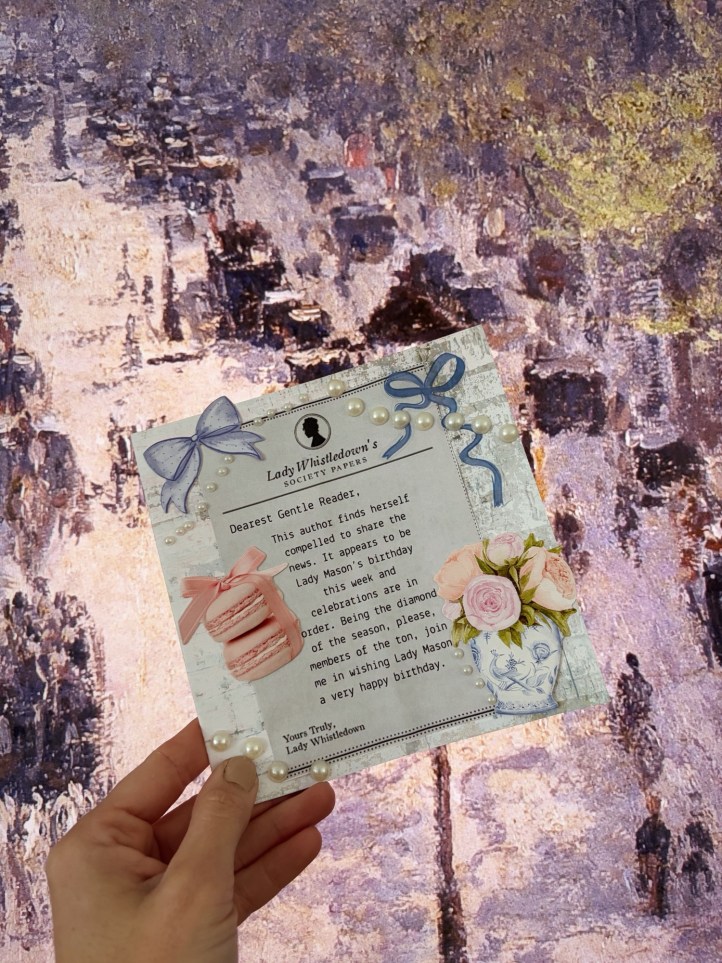 Lady Whistledown's
SOCIETY PAPERS
Dearest Gentle Reader,
This author finds herself
compelled to share the
news. It appears to be
Lady Mason's birthday
this week and
celebrations are in
order. Being the diamond
of the season, please,
members of the ton, join
me in wishing Lady Mason
a very happy birthday.
Yours Truly,
Lady Whistledown